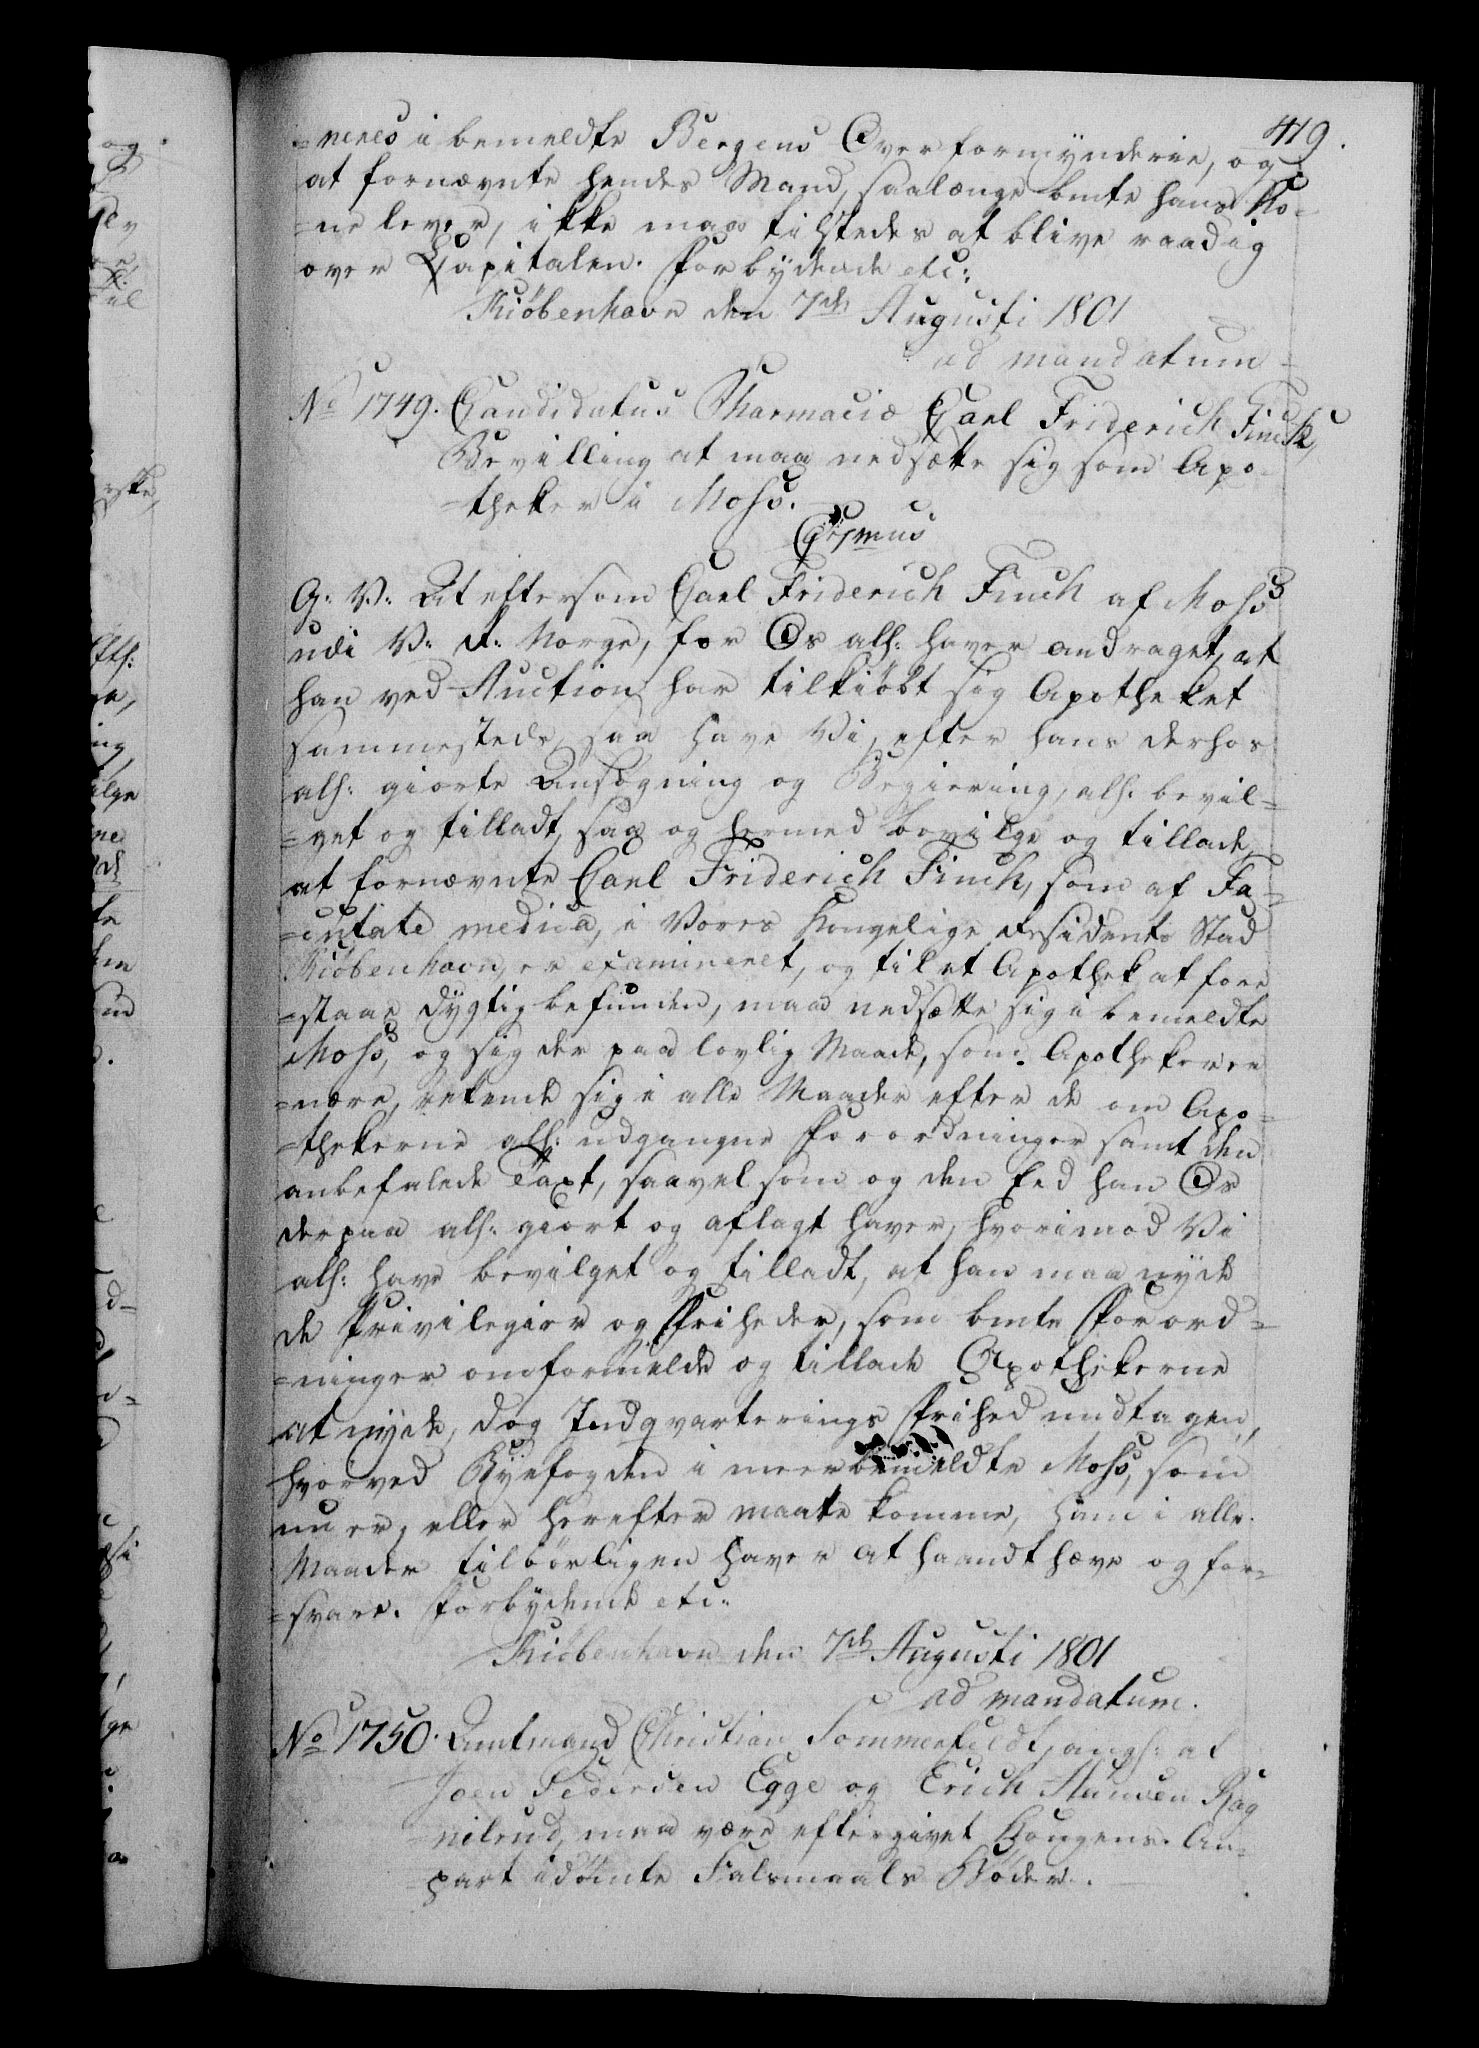 419.
=neres i bemeldte Bergens Overformynderie, og
at fornævnte hendes Mand, saalænge bmte hans Ko-
=ne lever, ikke maa tilstedes at blive raadig
over Capitalen. Forbydende etc:
Kiöbenhavn den 7de Augusti 1801
ad mandatum
No 1749. Candidatus Pharmaciæ Carl Friderich Finck,
Bevilling at maa nedsætte sig som Apo-
-theker i Moss.
G: V: At eftersom Carl Friderich Finch af Moss
udi V: R: Norge, for Os alls: haver andraget, at
han ved Auction har tilkiöbt sig Apotheket
sammestede, saa have Vi, efter hans derhos
alls: giorte Ansögning og Begiering, alls: bevil=
=get og tilladt, saa og hermed bevilge og tillade,
at fornævnte Carl Friderich Finch, som af Fa=
=cultate medica, i Vores Kongelige Residents Stad
Kiöbenhavn, er examineret, og til et Apothek at fore
=staae dygtig befunden, maa nedsætte sig i bemeldte
Moss, og sig der paa lovlig Maade, som Apotheker er
=nære, rettende sig i alle Maader efter de om Apo=
=thekerne alls: udgangne Forordninger samt den
anbefalede Taxt, saavelsom og den Eed han Os
derpaa alls: giort og aflagt haver, hvorimod Vi
alls: have bevilget og tilladt, at han maa nyde
de Privilegier og Friheder, som bmte Forord=
=ninger omformelde og tillade Apothekerne
at nyde, dog Indqvarterings Frihed undtagen,
hvorved Byefogden i meerbemeldte Moss, som
nu er, eller herefter maatte komme, ham i alle
Maader tilbörligen haver at haandthæve og for=
=svare. Forbydende etc:
Kiöbenhavn den 7de Augusti 1801
ad mandatum.
No 1750. Amtmand Christian Sommerfeldt, angs: at
Joen Pedersen Egge og Erich Hansen Rag
nilrud, maa være eftergivet Kongens An=
part idömte Falsmaals Böder.